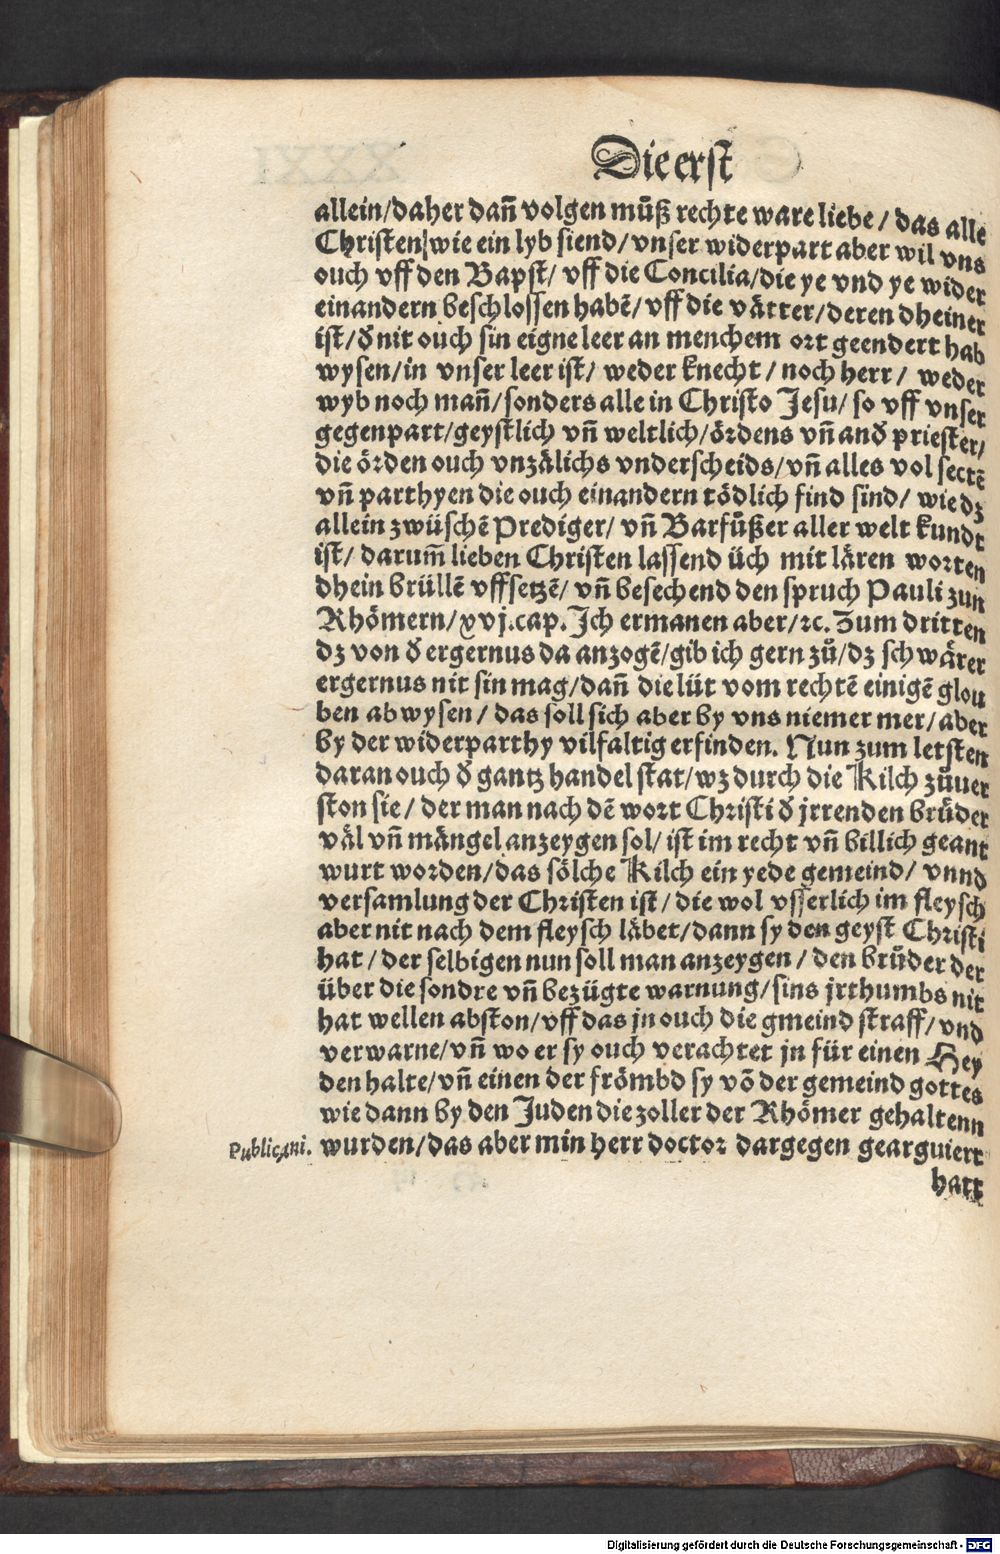 Die erst
allein/daher dañ volgen muͤß rechte ware liebe/ das alle
Christen/wie ein lyb siend/vnser widerpart aber wil vns
ouch vff den Bapst/ vff die Concilia/die ye vnd ye wider
einandern beschlossen habē/ vff die vaͤtter/deren dheiner
ist/ď nit ouch sin eigne leer an menchem ort geendert hab
wysen/in vnser leer ist/ weder knecht/noch herr/ weder
wyb noch mañ/sonders alle in Christo Jesu/ so vff vnser
gegenpart/geystlich vñ weltlich/oͤrdens vñ anď priester/
die oͤrden ouch vnzaͤlichs vnderscheids/vñ alles vol sectē
vñ parthyen die ouch einandern toͤdlich find sind/ wie dz
allein zwüschē Prediger/ vñ Barfuͤßer aller welt kundt
ist/ darum̄ lieben Christen lassend üch mit laͤren worten
dhein brüllē vffsetzē/ vñ besechend den spruch Pauli zun
Rhoͤmern/xvj.cap. Jch ermanen aber/ꝛc. Zum dritten
dz von ď ergernus da anzogē/gib ich gern zů/dz schwaͤrer
ergernus nit sin mag/dañ die lüt vom rechtē einigē glou
ben abwysen/ das soll sich aber by vns niemer mer/aber
by der widerparthy vilfaltig erfinden. Nun zum letsten
daran ouch ď gantz handel stat/wz durch die Kilch zůuer
ston sie/ der man nach dē wort Christi ď jrrenden bruͤder
vaͤl vñ maͤngel anzeygen sol/ ist im recht vñ billich geant
wurt worden/das soͤlche Kilch ein yede gemeind/ vnnd
versamlung der Christen ist/die wol vsserlich im fleysch
aber nit nach dem fleysch laͤbet/dann sy den geyst Christi
hat/der selbigen nun soll man anzeygen/den bruͤder der
über die sondre vñ bezügte warnung/sins jrthumbs nit
hat wellen abston/vff das jn ouch die gmeind straff/vnd
verwarne/vñ wo er sy ouch verachtet jn für einen Hey
den halte/vñ einen der froͤmbd sy võ der gemeind gottes
wie dann by den Juden die zoller der Rhoͤmer gehaltenn
Publicani. wurden/das aber min herr doctor dargegen gearguiert
hatt
Digitalisierung gefördert durch die Deutsche Forschungsgemeinschaft - DFG